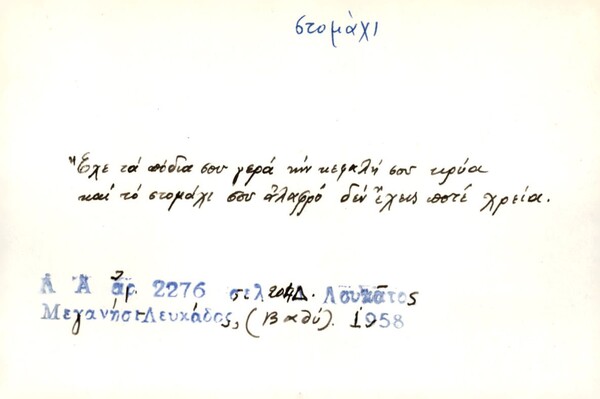 στομάχι
Ἔχε τά πόδια σου γερά τήν κεφαλή σου κρύα
καί τό στομάχι σου ἀλαφρό δέν ἔχεις ποτέ χρεία.
Λ Α ἀρ. 2276 σελ. 204 Δ. Λουκᾶτος
Μεγανήσι Λευκάδος, (Βαθύ). 1958